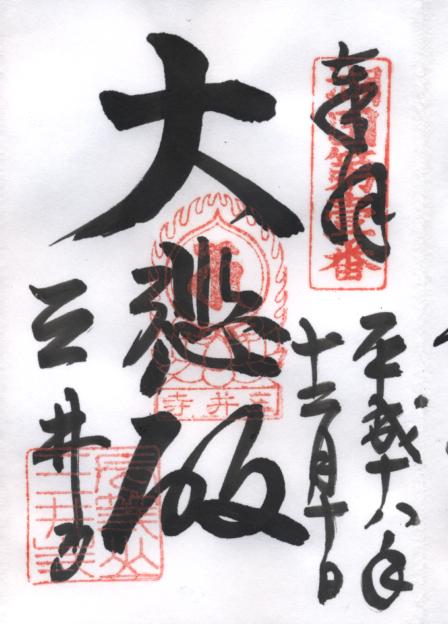 奉拝
西國第十四番
平成十八年
十二月十日
大悲殿
三井寺
三井寺